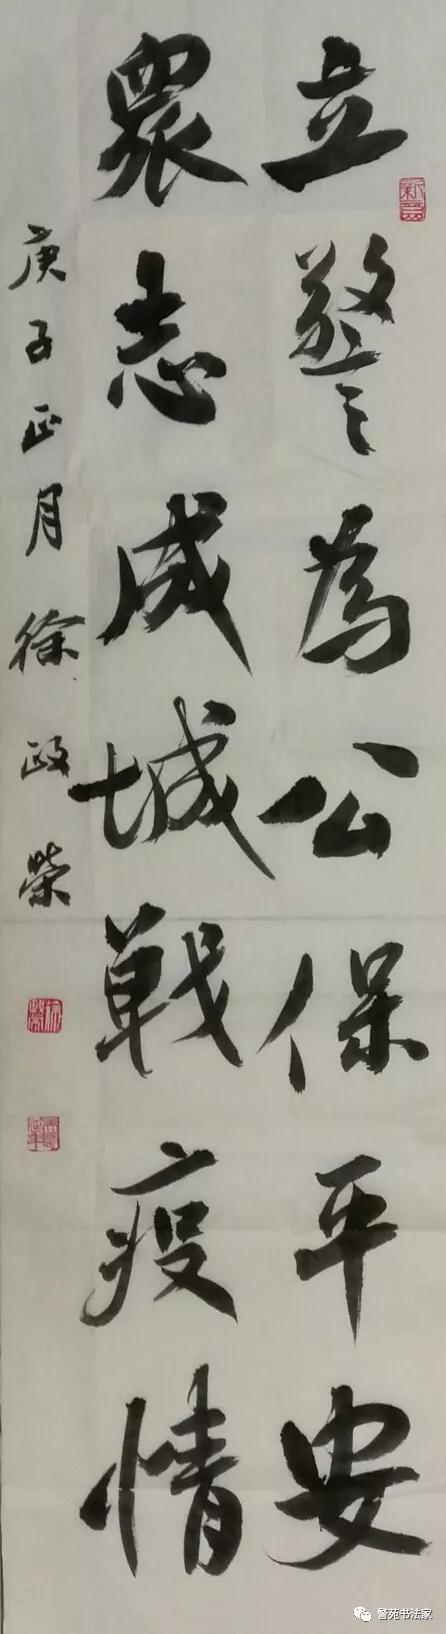 立警為公保平安
眾志成城戰疫情
庚子正月徐政榮
警苑书法家